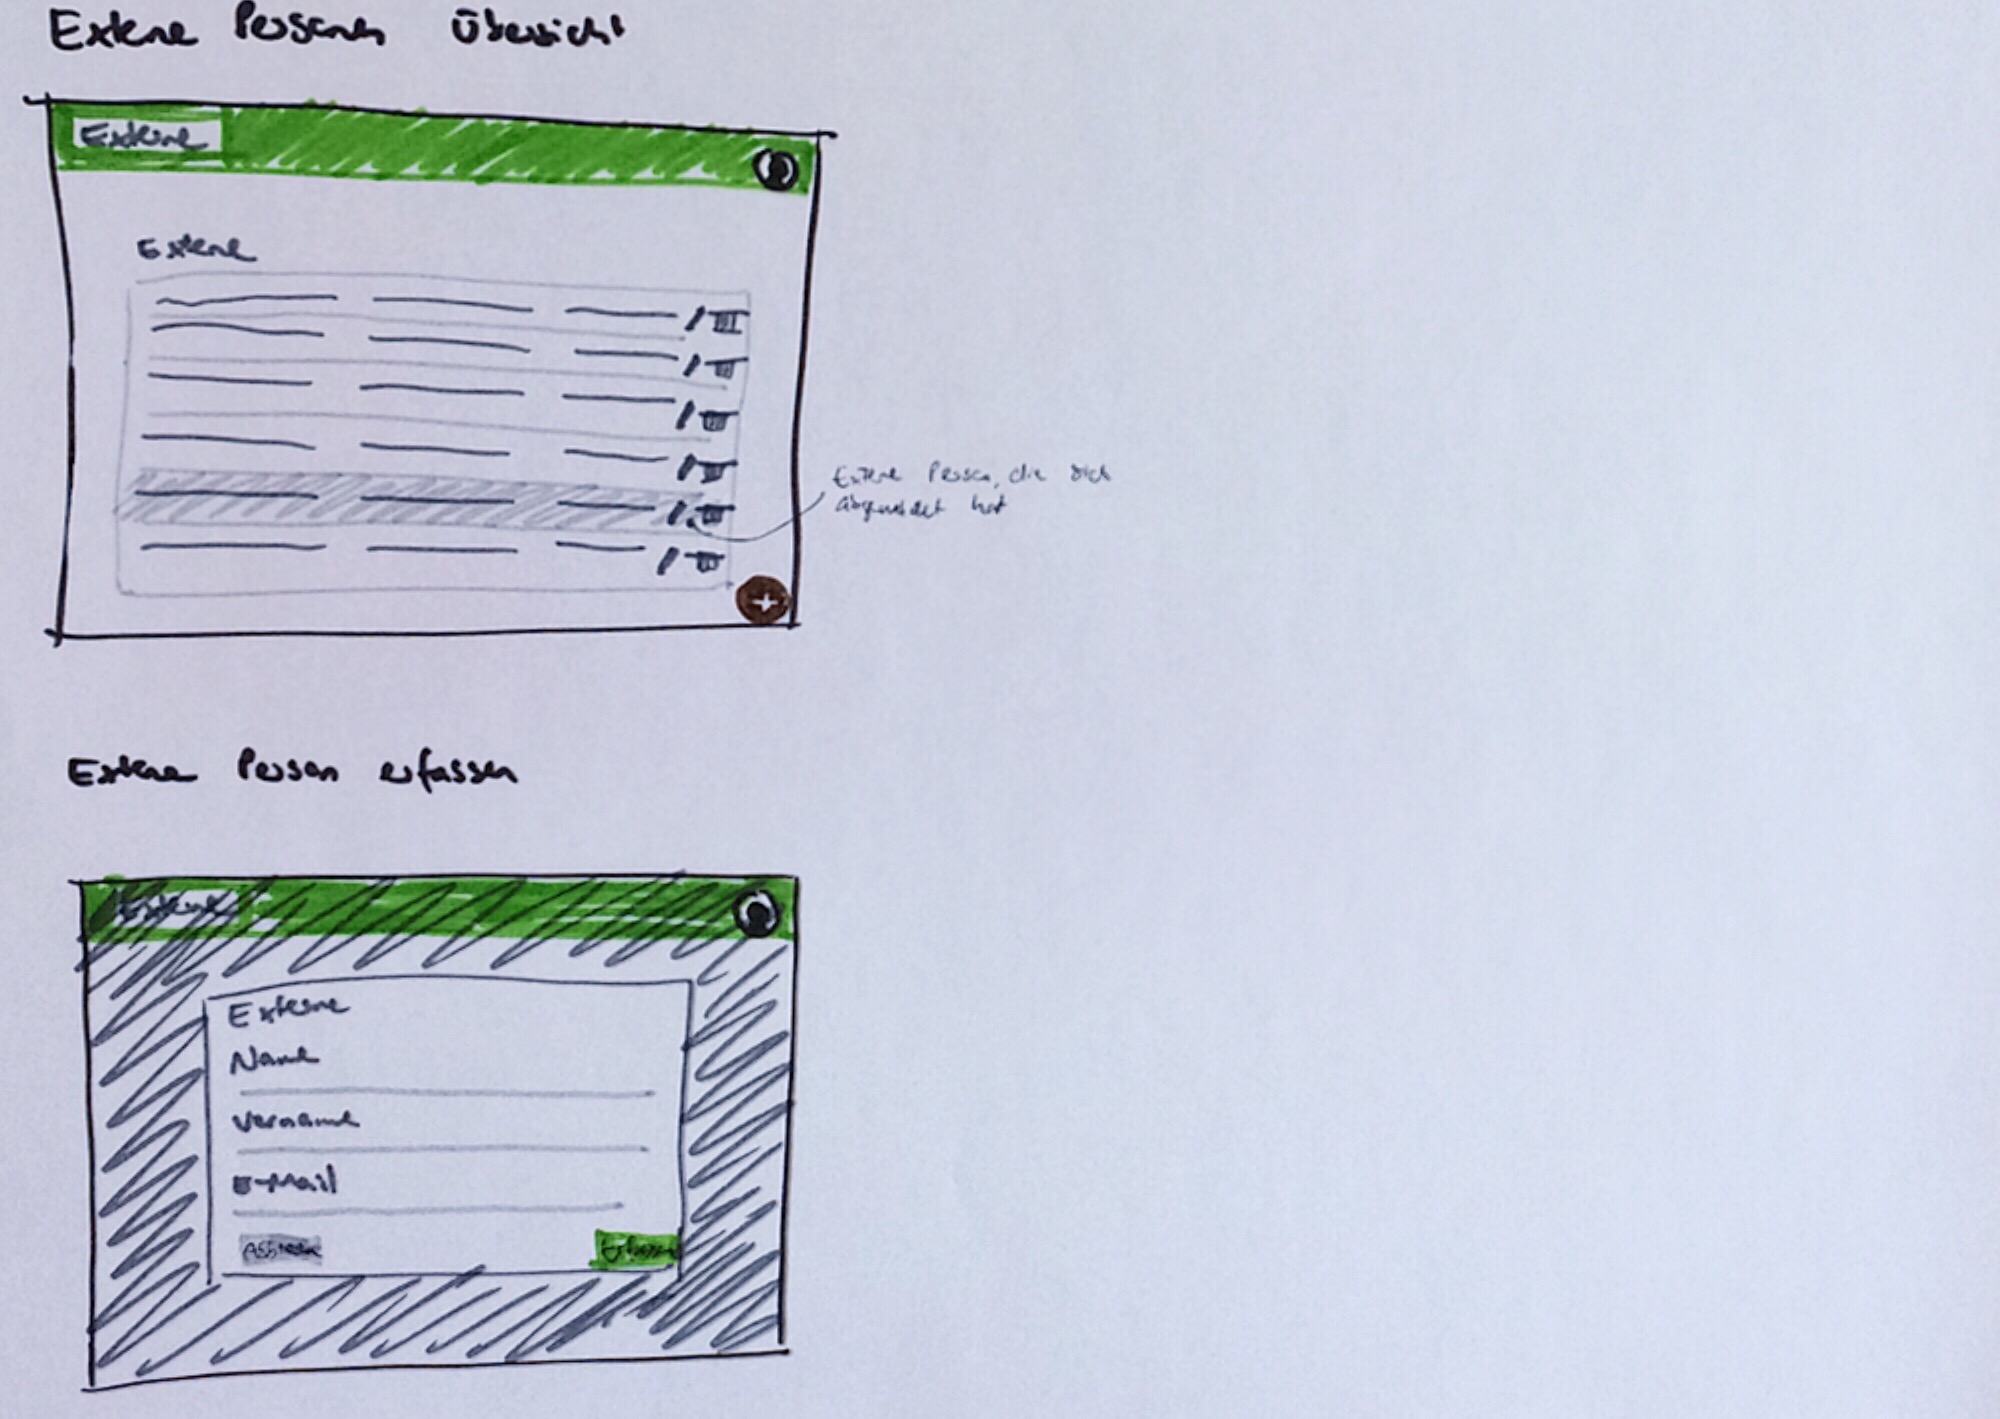 Externe Personen Übersicht
Externe
Externe
Externe Person, die sich
abgemeldet hat
Externe Person erfassen
Externe
Externe
Name
Vorname
E-Mail